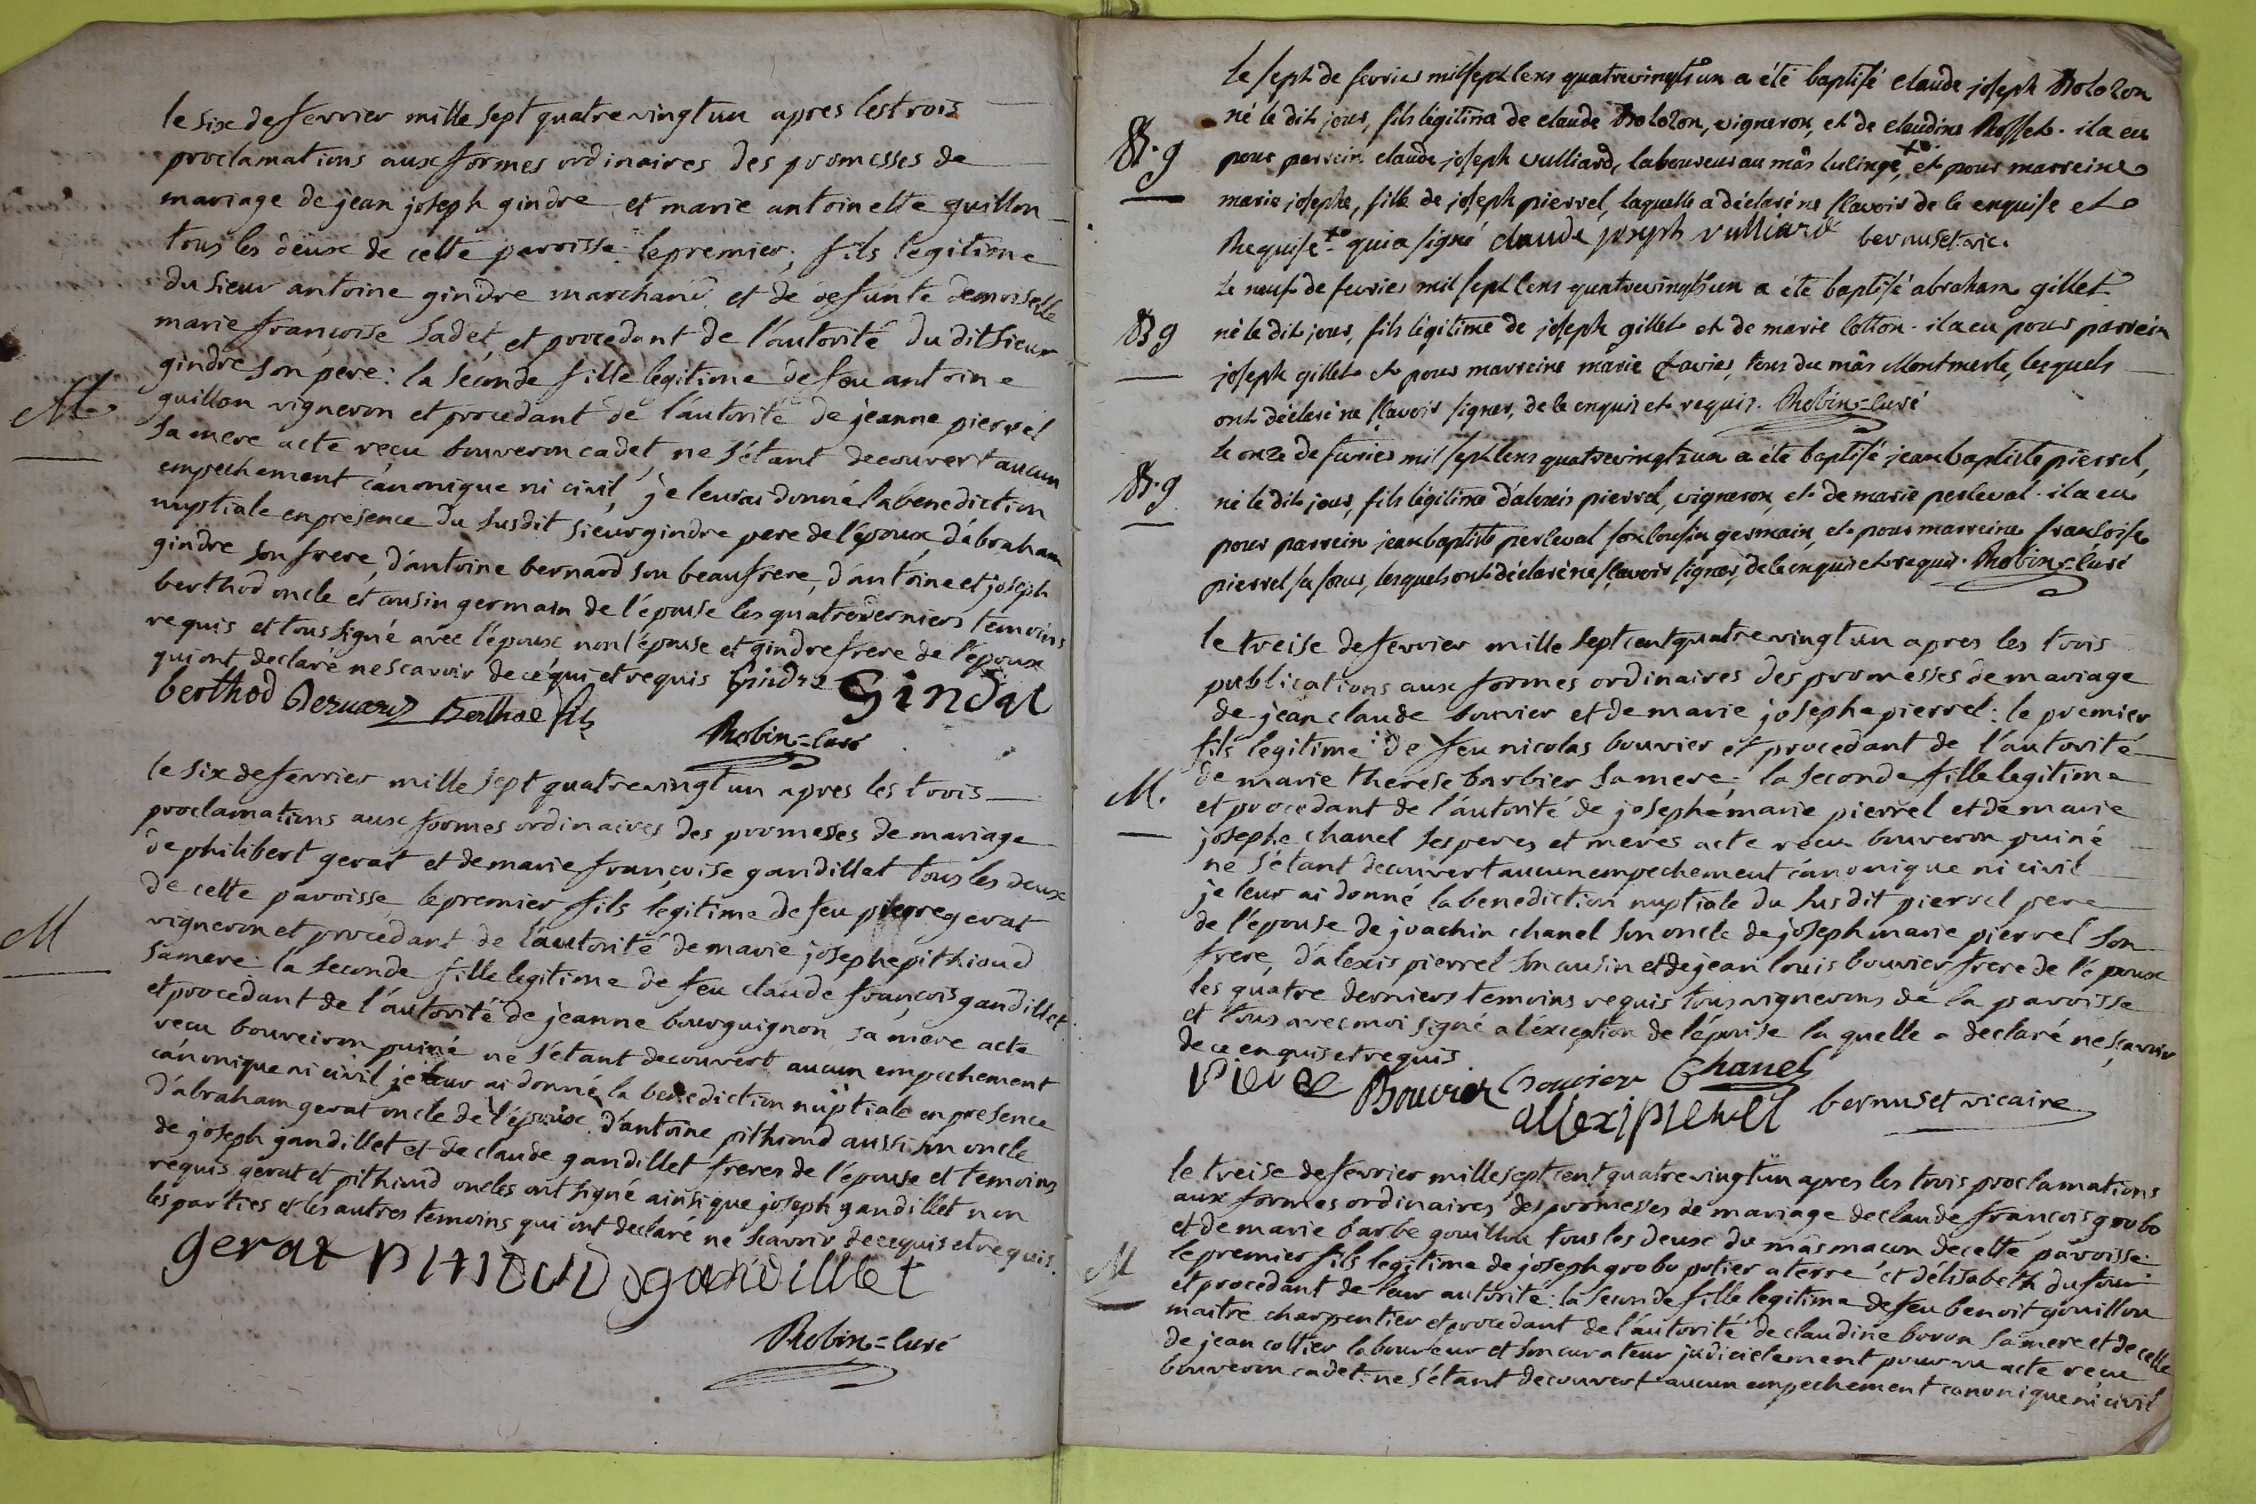 le six de fevrier mille sept quatre vingt un apres les trois
proclamations aux formes ordinaires des promesses de
mariage de jean joseph gindre et marie antoinette guillon
tous les deux de cette paroisse : le premier, fils legitime
du sieur antoine gindre marchand et de defunte demoiselle
marie françoise sadet et procedant de l'autorité du dit sieur
gindre son pere : la seconde fille legitime de feu antoine
M
guillon vigneron et procedant de l'autorité de jeanne pierrel
sa mere acte reçu bouveron cadet, ne s'étant decouvert aucun
empechement canonique ni civil, je leur ai donné la benediction
nuptiale en presence du susdit sieur gindre pere de l'époux, d'abraham
gindre son frere, d'antoine bernard son beaufrere, d'antoine et joseph
berthod oncle et cousin germain de l'épouse les quatre derniers temoins
requis et tous signé avec l'époux non l'épouse et gindre frere de l'époux
qui ont declaré ne scavoir de ce qui et requis Gindre Gindre
berthod Bernard Berthod fils
Robin = curé
le six de fevrier mille sept quatre vingt un apres les trois
proclamations aux formes ordinaires des promesses de mariage
de philibert gerat et de marie françoise gandillet tous les deux
de cette paroisse, le premier fils legitime de feu pierre gerat
M
vigneron et procedant de l'autorité de marie josephe pithioud
sa mere : la seconde fille legitime de feu claude françois gandillet
et procedant de l'autorité de jeanne bourguignon sa mere acte
recu bouveiron puiné ne s'étant decouvert aucun empechement
canonique ni civil je leur ai donné la benediction nuptiale en presence
d'abraham gerat oncle de l'époux d'antoine pithioud aussi son oncle
de joseph gandillet et de claude gandillet freres de l'épouse et temoins
requis gerat et pithioud oncles ont signé ainsi que joseph gandillet non
les parties et les autres temoins qui ont declaré ne scavoir de ce quis et requis.
gerat pithioud gandillet
Robin = curé
le sept de fevrier mil sept cens quatrevingts un a été baptisé claude joseph Bolozon
né le dit jour, fils légitime de claude Bolozon, vigneron, et de claudine Rosset. il a eu
B. g
pour parrein claude joseph vulliard, laboureur au mâs lulinge, et pour marreine
marie josephe, fille de joseph pierrel, laquelle a déclaré ne sçavoir de ce enquise et
Requise qui a signé claude joseph vulliard bernuset vic.
Le neuf de fevrier mil sept cens quatrevingts un a été baptisé abraham gillet
B g
né le dit jour, fils légitime de joseph gillet et de marie Cotton. il a eu pour parrein
joseph gillet et pour marreine marie tavier, tous du mâs Montmerle, lesquels
ont déclaré ne sçavoir signer, de ce enquis et requis. Robin = curé
Le onze de fevrier mil sept cens quatrevingts un a été baptisé jean baptiste pierrel,
B. g
né le dit jour, fils légitime d'alexis pierrel, vigneron, et de marie perceval. il a eu
pour parrein jean baptiste perceval son cousin germain, et pour marreine françoise
pierrel sa sœur, lesquels ont déclaré ne sçavoir signer, de ce enquis et requis. Robin = curé
le treise de fevrier mille sept cent quatre vingt un apres les trois
publications aux formes ordinaires des promesses de mariage
de jean claude bouvier et de marie josephe pierrel : le premier
fils legitime de feu nicolas bouvier et procedant de l'autorité
de marie therese barbier sa mere ; la seconde fille legitime
M.
et procedant de l'autorité de joseph marie pierrel et de marie
josephe chanel ses peres et meres acte recu bouveron puiné
ne s'étant decouvert aucun empechement canonique ni civil
je leur ai donné la benediction nuptiale du susdit pierrel pere
de l'épouse de joachin chanel son oncle de joseph marie pierrel son
frere, d'alexis pierrel son cousin et de jean louis bouvier frere de l'époux
les quatre derniers temoins requis tous vignerons de la paroisse
et tous avec moi signé a l'exception de l'épouse la quelle a declaré ne sçavoir
de ce enquis et requis
pierrel Bouvier bouvier Chanel
allexi pierrel bernuset vicaire
le treise de fevrier mille sept cent quatre vingt un apres les trois proclamations
aux formes ordinaires des promesses de mariage de claude françois grobo
et de marie barbe gouillou tous les deux du mas macon de cette paroisse :
M
le premier fils legitime de joseph grobo potier a terre et d'élisabeth dufour
et procedant de leur autorité : la seconde fille legitime de feu benoit gouillou
maitre charpentier et procedant de l'autorité de claudine boron sa mere et de celle
de jean cottier laboureur et son curateur judicielement pourvu acte reçu
bouveron cadet : ne s'étant decouvert aucun empechement canonique ni civil